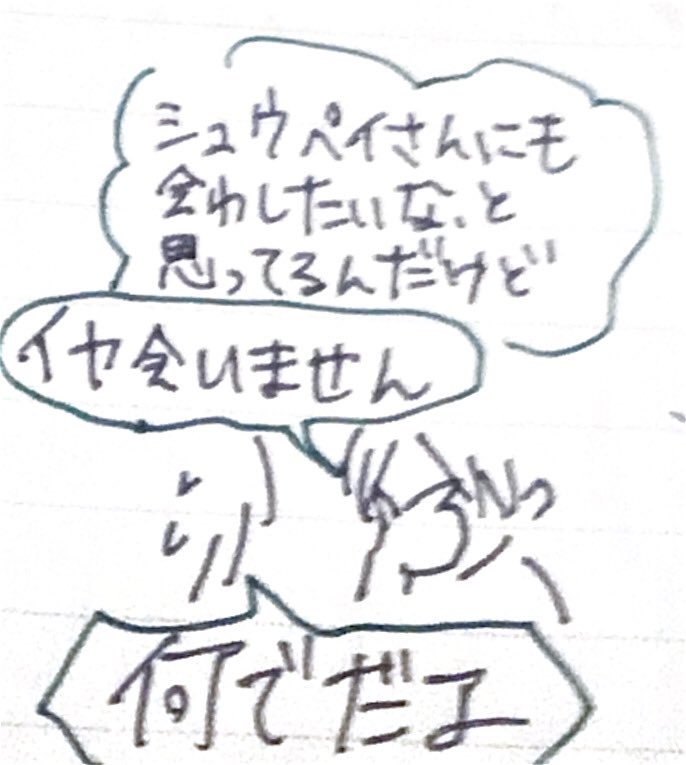 シュウペイさんにも
会わしたいな、と
思ってるんだけど
イヤ会いません
何でだよ